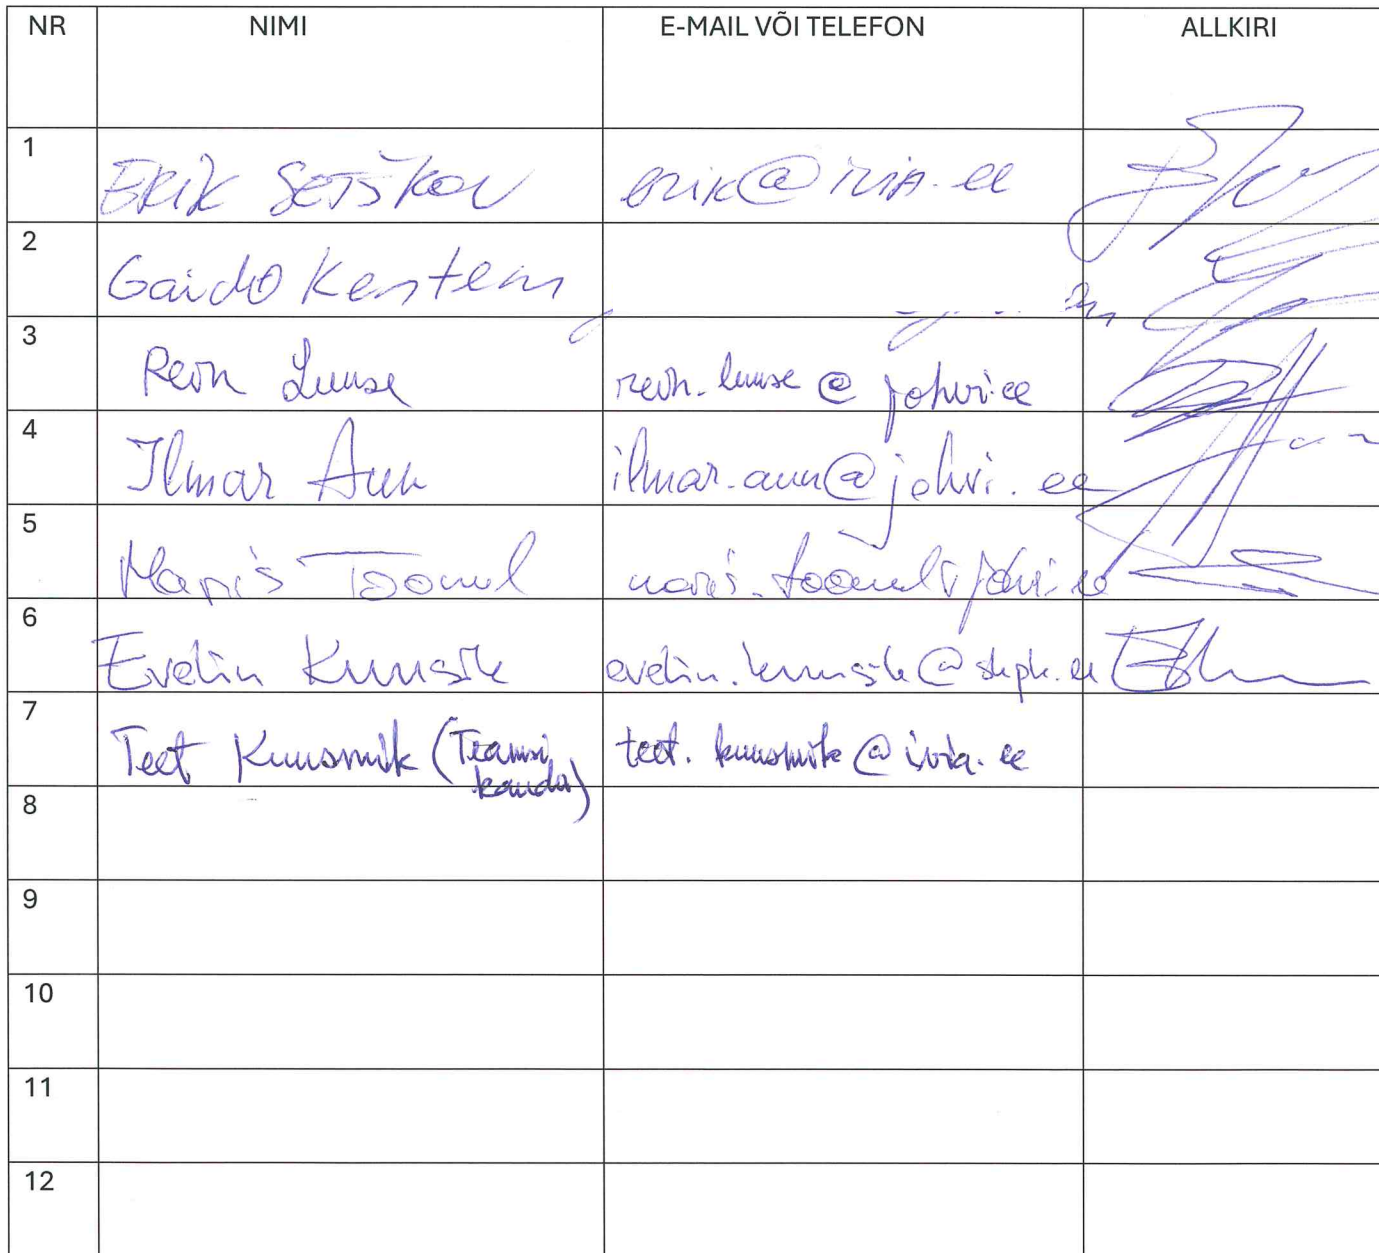 NR NIMI E-MAIL VÕI TELEFON ALLKIRI
1 ERIK SETŠKOV erik@ivia.ee
2 Gaido Kentem
3 Rein Luuse rein.luuse@johvi.ee
4 Ilmar Aun ilmar.aun@johvi.ee
5 Maris Toomel
6 Evelin Kuusik evelin.kuusik@skpk.ee
7 Teet Kuusmik (Teamsi
kaudu) teet.kuusmik@ivia.ee
8
9
10
11
12